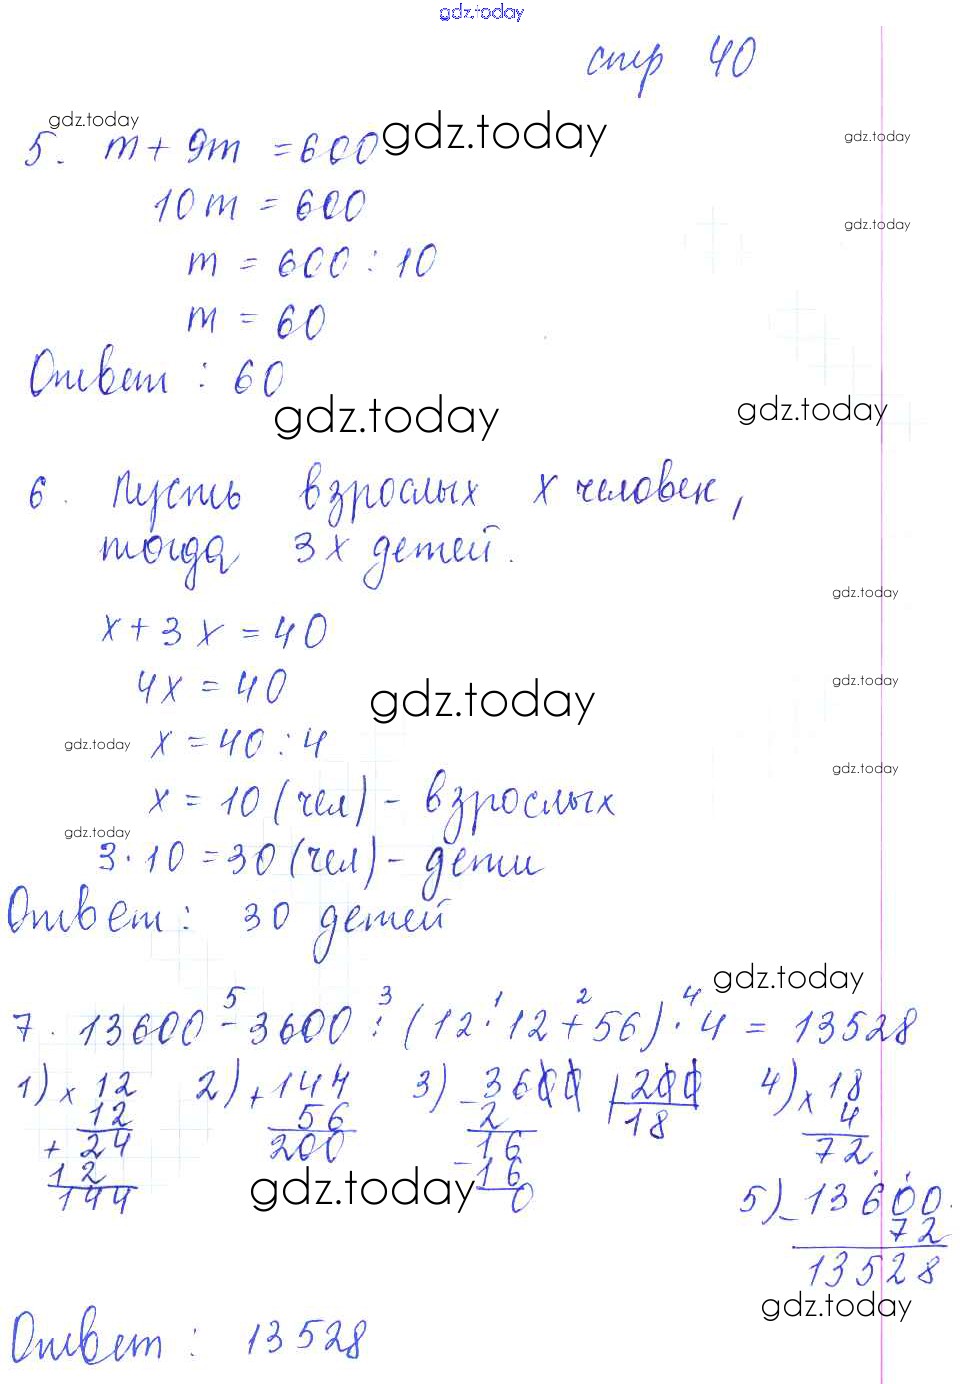 gdz.today
стр 40
gdz.today
gdz.today
gdz.today
5. m + 9m = 600
10m = 600
gdz.today
m = 600 : 10
m = 60
Ответ : 60
gdz.today
gdz.today
6. Пусть взрослых x человек,
тогда 3x детей.
gdz.today
x + 3x = 40
4x = 40
gdz.today
gdz.today
gdz.today
x = 40 : 4
gdz.today
x = 10 (чел) - взрослых
gdz.today
3 · 10 = 30 (чел) - дети
Ответ : 30 детей
gdz.today
5 3 1 2 4
7. 13600 - 3600 : (12 · 12 + 56) · 4 = 13528
1) x 12 2) + 144 3) - 3600 | 200 4) x 18
12 56 2 18 4
+ 24 200 16 72
12 - 16
144 0
gdz.today
5) - 13600
72
13528
gdz.today
Ответ : 13528